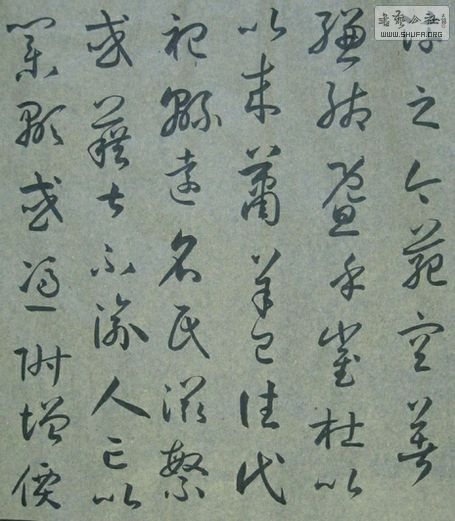 之令范空著
縑緗暨乎崔杜以
以來蕭羊已往代
祀緜遠名氏滋繁
或藉甚不渝人亡以
業顯或憑附增價
书艺公社
WWW.SHUFA.ORG